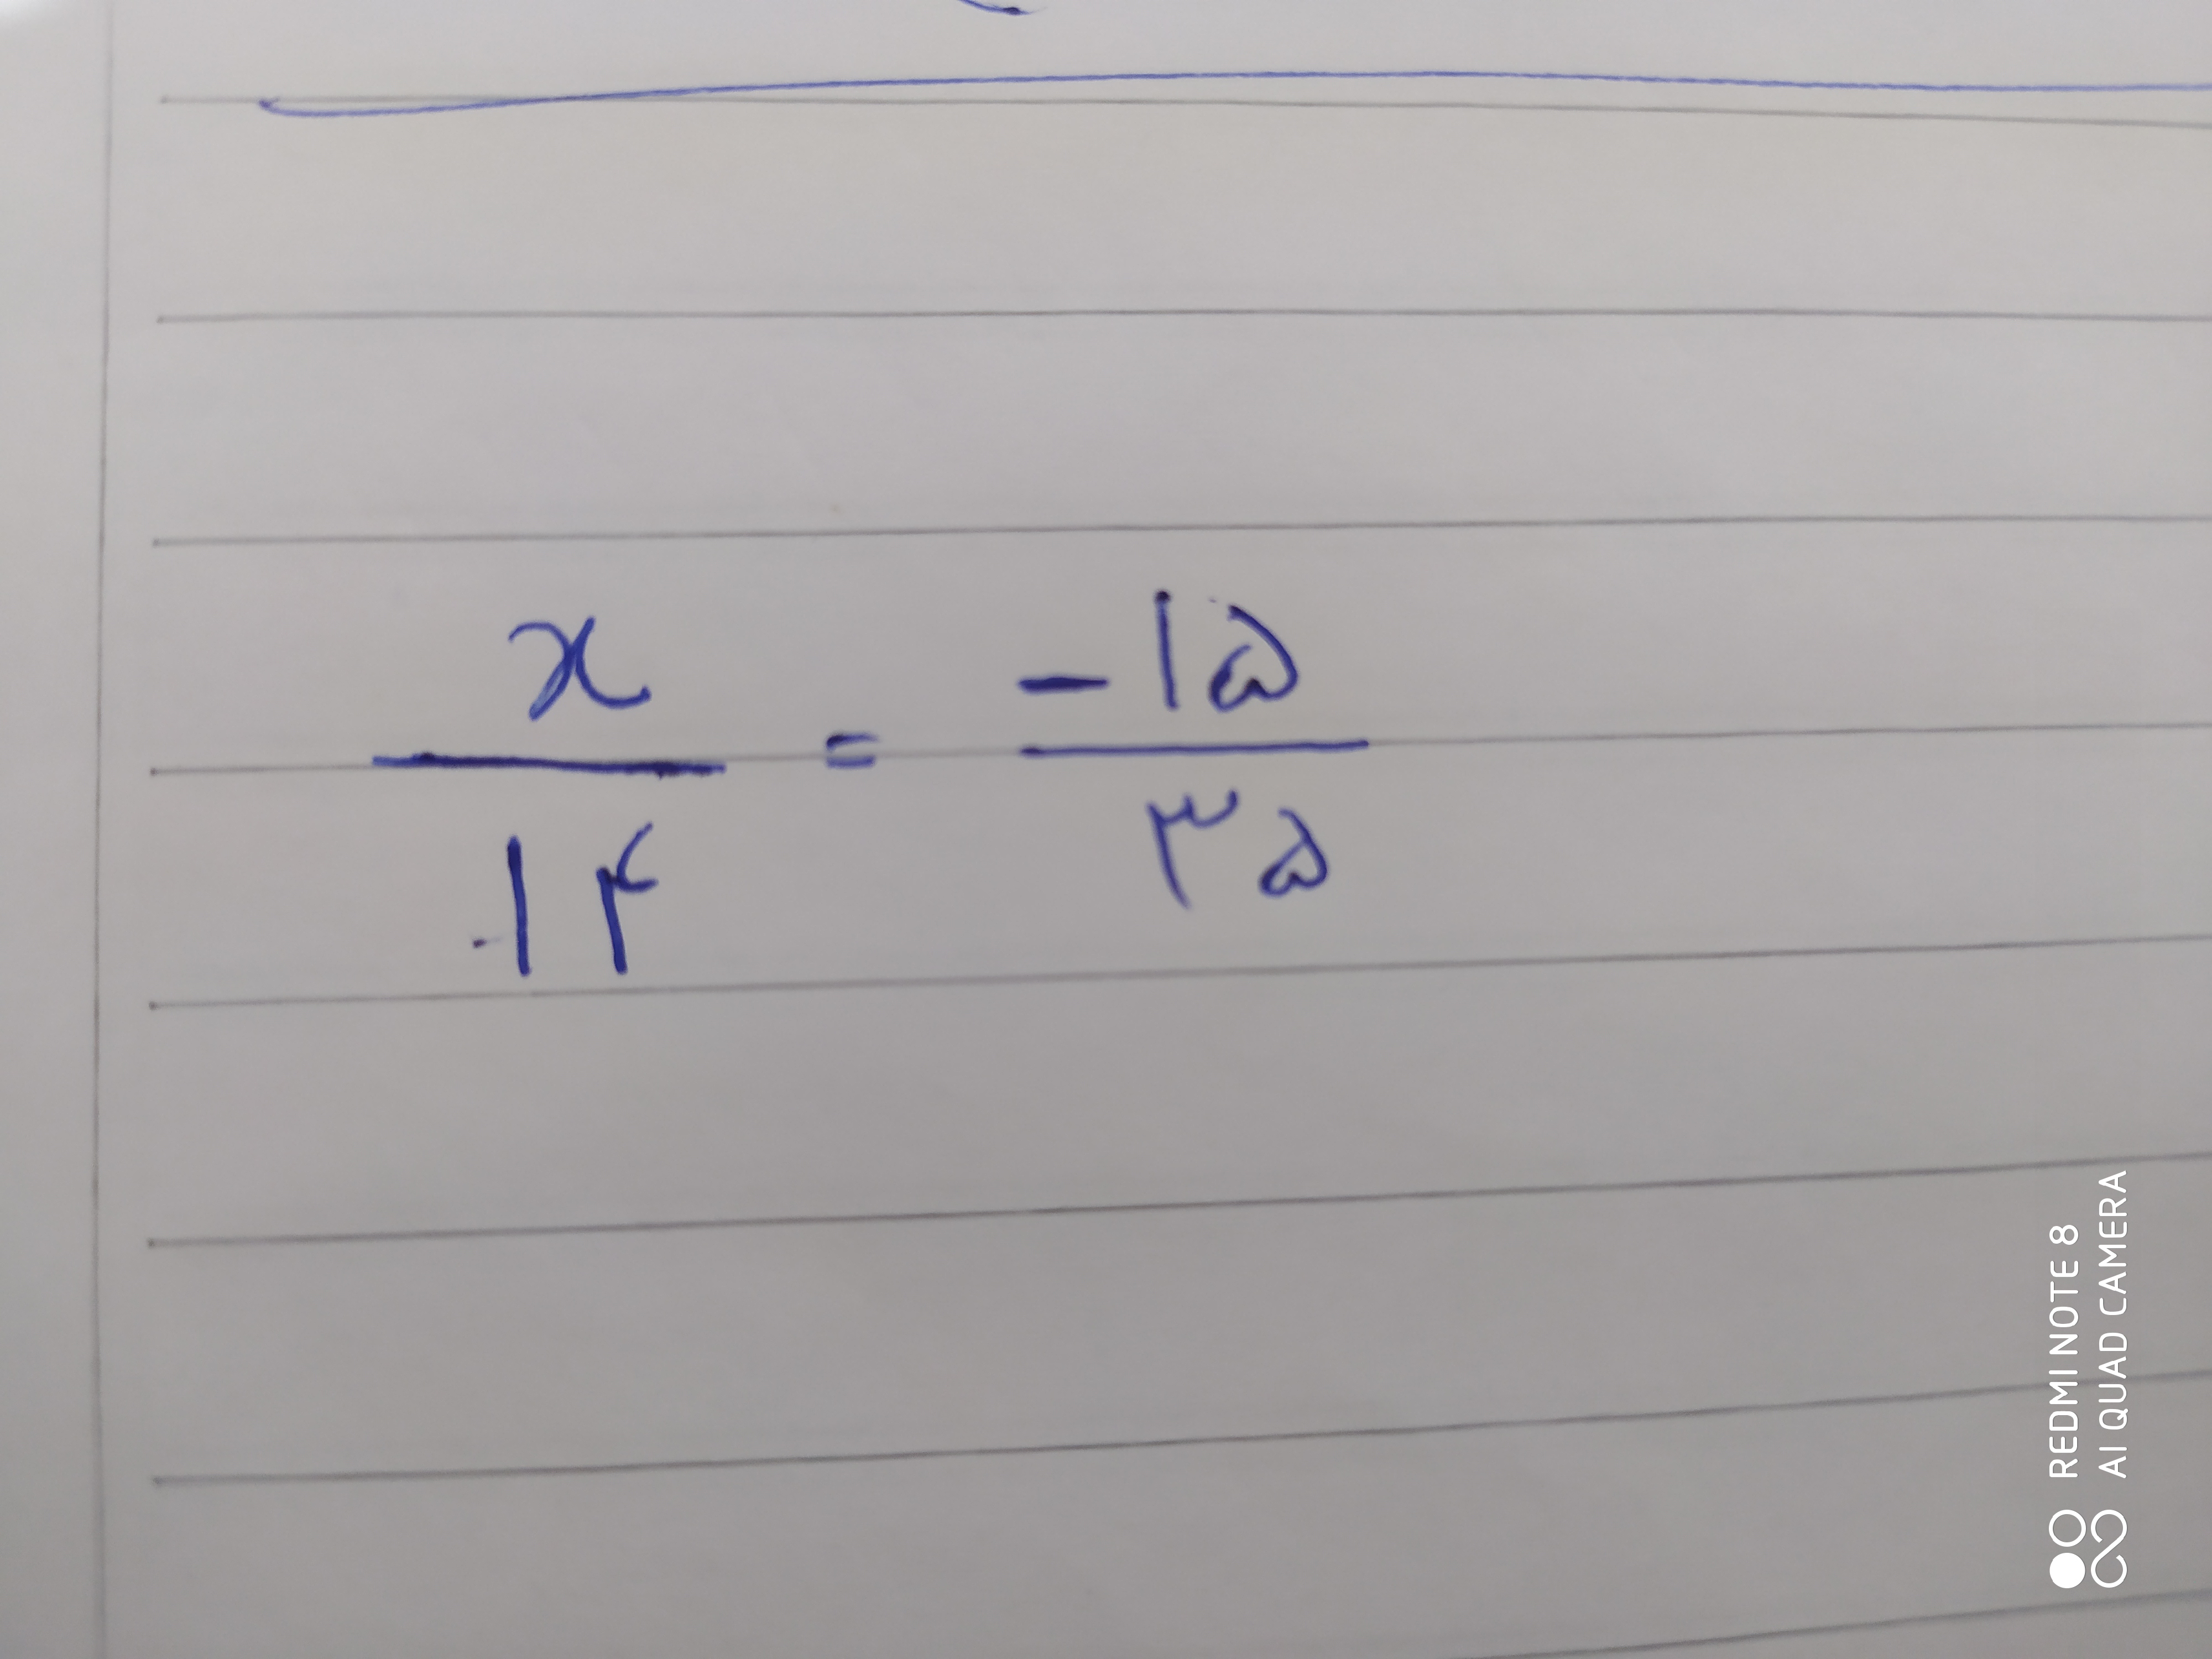 x/۱۴ = -۱۵/۳۵
REDMI NOTE 8
AI QUAD CAMERA